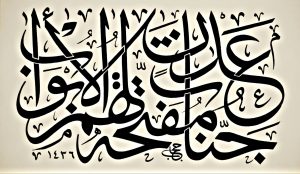 جنّات عدن مفتّحة لهم الأبواب
١٤٣٦